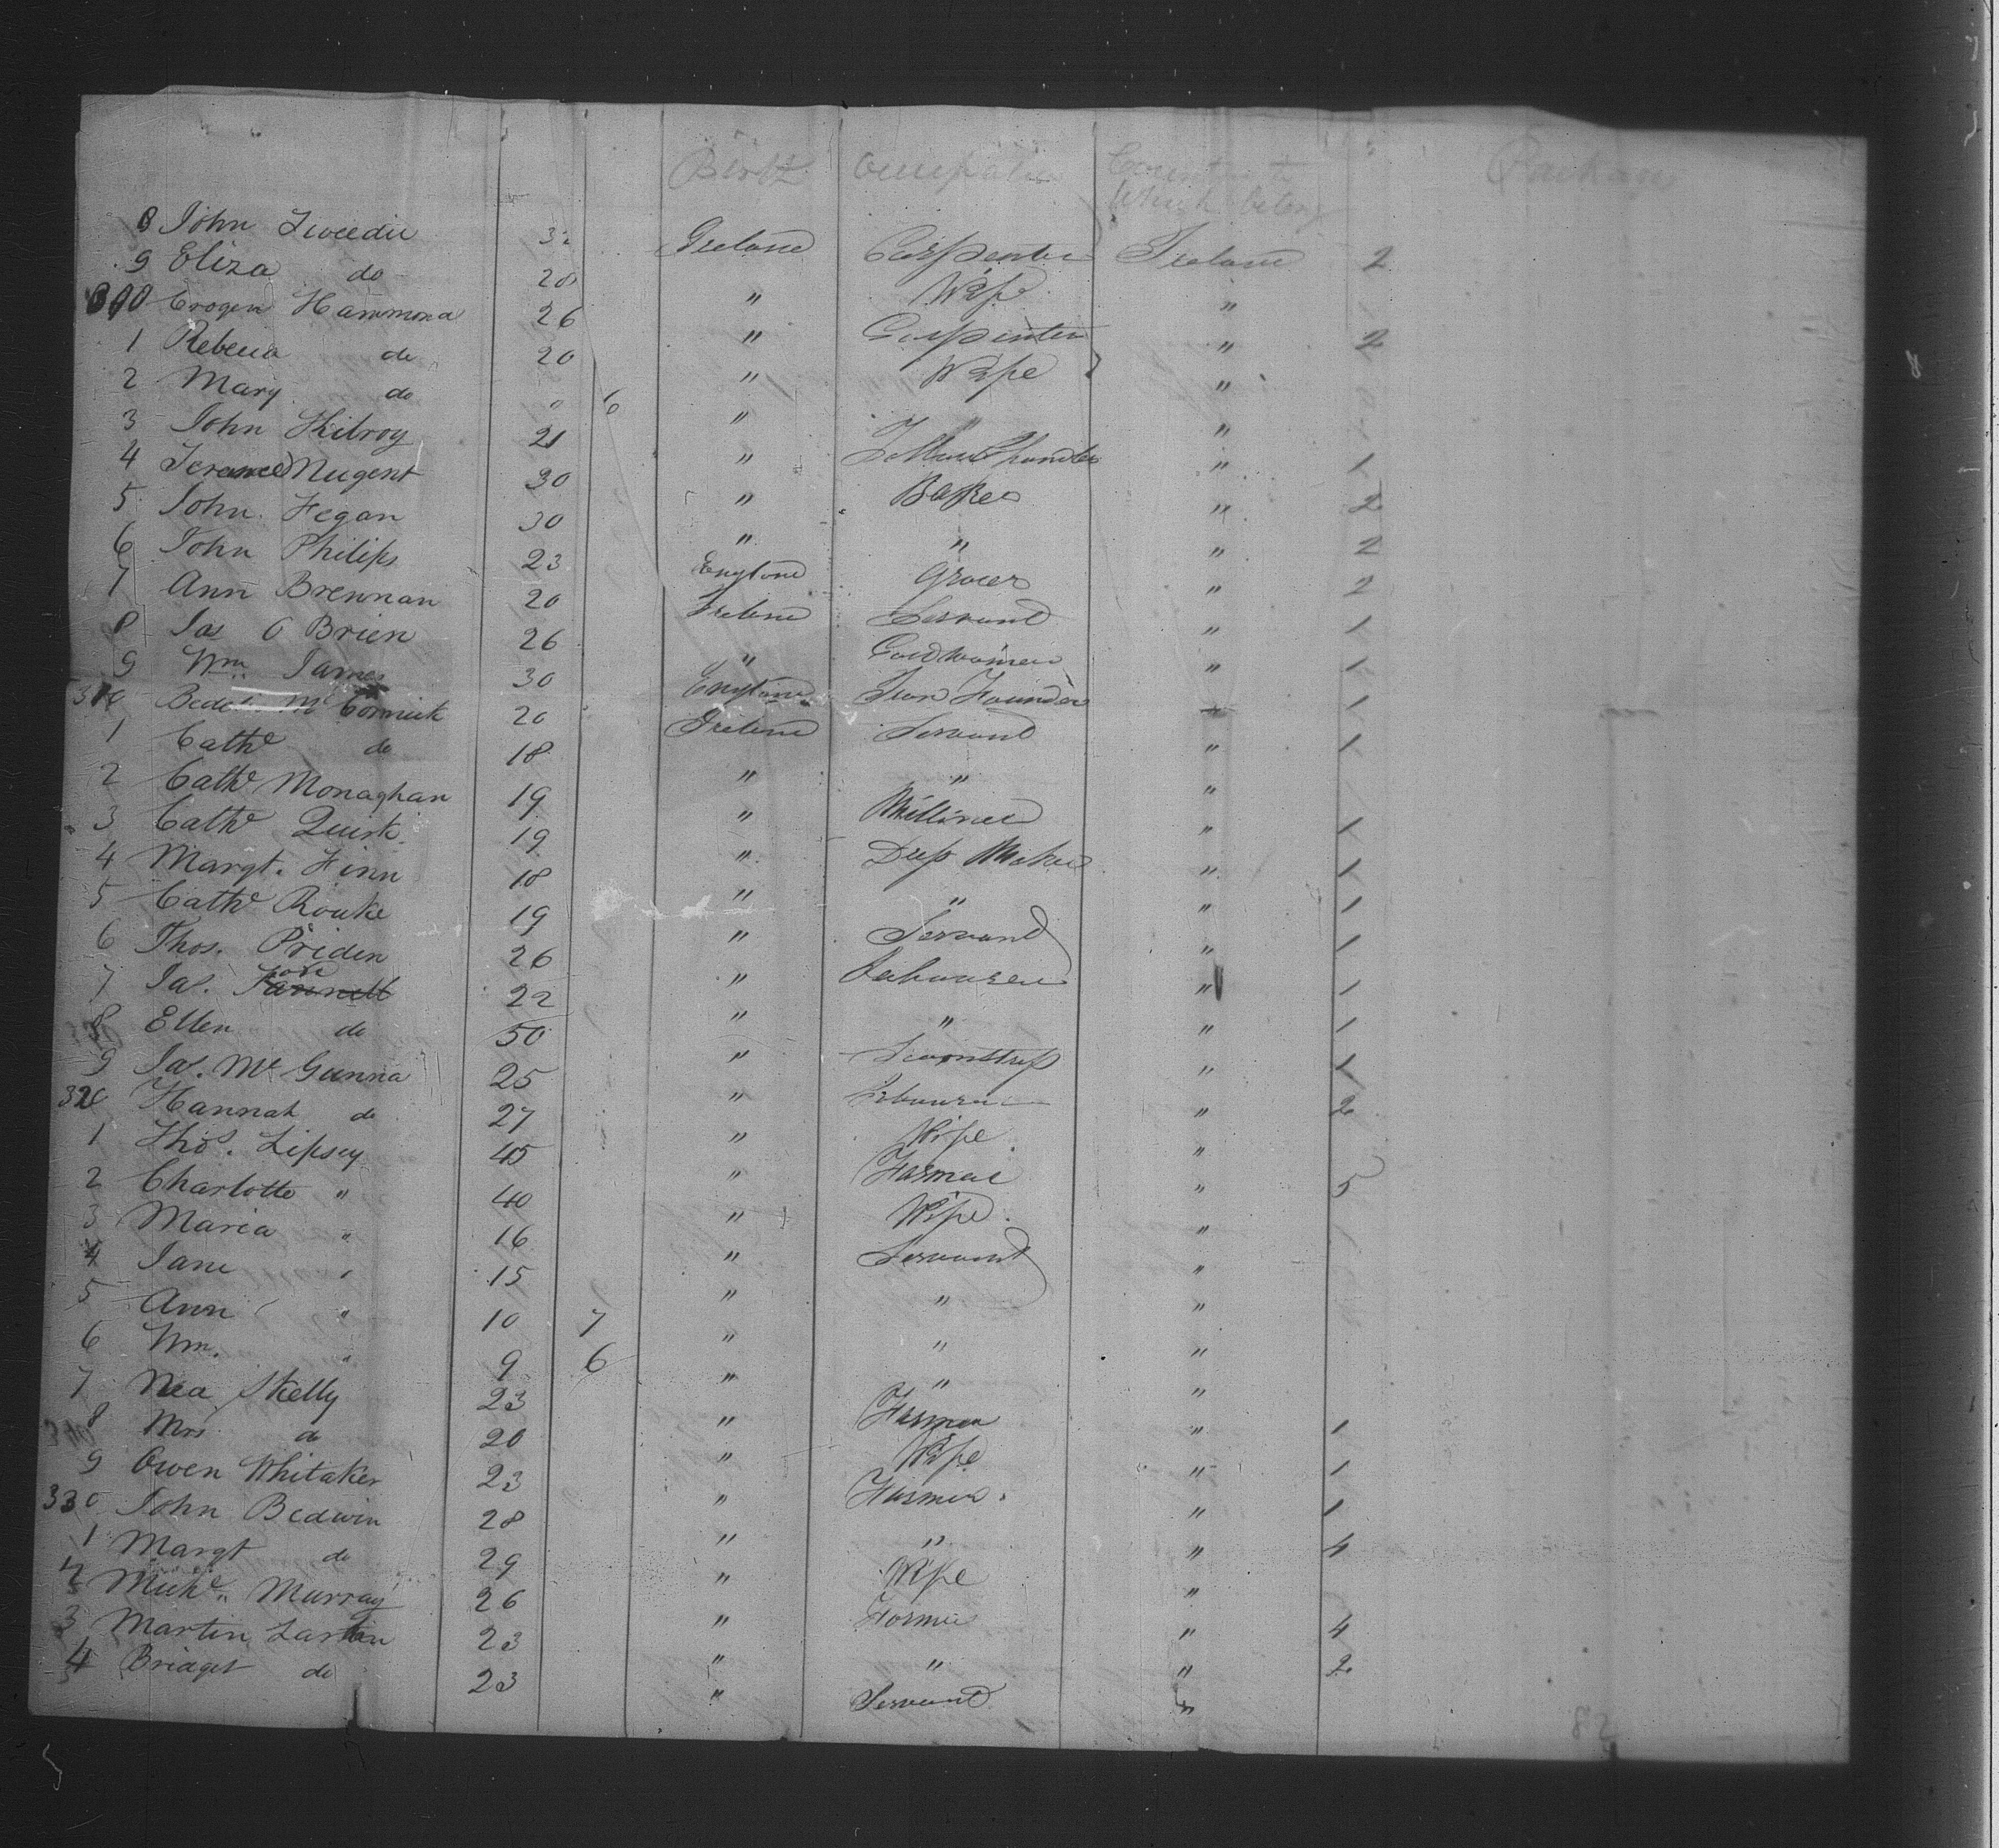 Birth Occupation Country to Which belong
8 John Tweedie 32 Ireland Carpenter Ireland 2
9 Eliza do 28 " Wife "
300 Hammond 26 " Carpenter " 2
1 Rebecca do 20 " Wife "
2 Mary do " 6 " " "
3 John Kilroy 21 " Tallow Chandler " 1
4 Terence Nugent 30 " Baker " 2
5 John Fegan 30 " " " 2
6 John Philips 23 England Grocer " 2
7 Ann Brennan 20 Ireland Servant " 1
8 Jas O Brien 26 " " 1
9 Wm. James 30 England Iron Founder " 1
310 McCormick 20 Ireland Servant " 1
1 Cathe do 18 " " "
2 Cathe Monaghan 19 " Milliner " 1
3 Cathe Quirk 19 " Dress Maker " 1
4 Margt. Finn 18 " " " 1
5 Cathe Rouke 19 " Servant " 1
6 Thos. Priden 26 " Labourer " 1
7 Jas. 22 " " " 1
8 Ellen do 50 " Seamstress " 1
9 Jas. Mc Gunna 25 " Labourer " 2
320 Hannah do 27 " Wife "
1 Thos. Lipsey 45 " Farmer " 5
2 Charlotte " 40 " Wife "
3 Maria " 16 " Servant "
4 Jane " 15 " " "
5 Ann " 10 7 " " "
6 Wm. " 9 6 " " "
7 Skelly 23 " Farmer " 1
8 Mrs do 20 " Wife " 1
9 Owen Whitaker 23 " Farmer " 1
330 John Bedwin 28 " " " 4
1 Margt do 29 " Wife "
2 Michl. Murray 26 " Farmer " 4
3 Martin Larkin 23 " " " 2
4 Bridget do 23 " Servant "
82